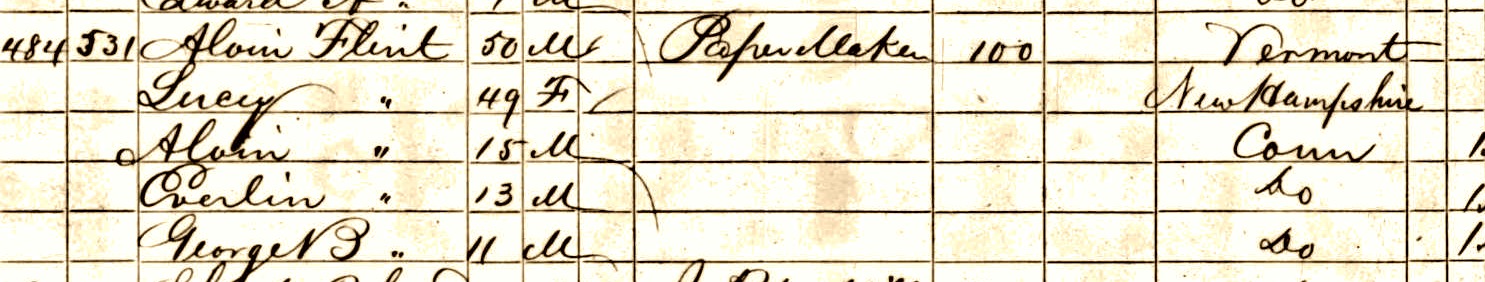 Edward
484 531 Alvin Flint 50 M Paper Maker 100 Vermont
Lucy " 49 F New Hampshire
Alvin " 15 M Conn 1
Everlin " 13 M Do 1
George B " 11 M Do 1